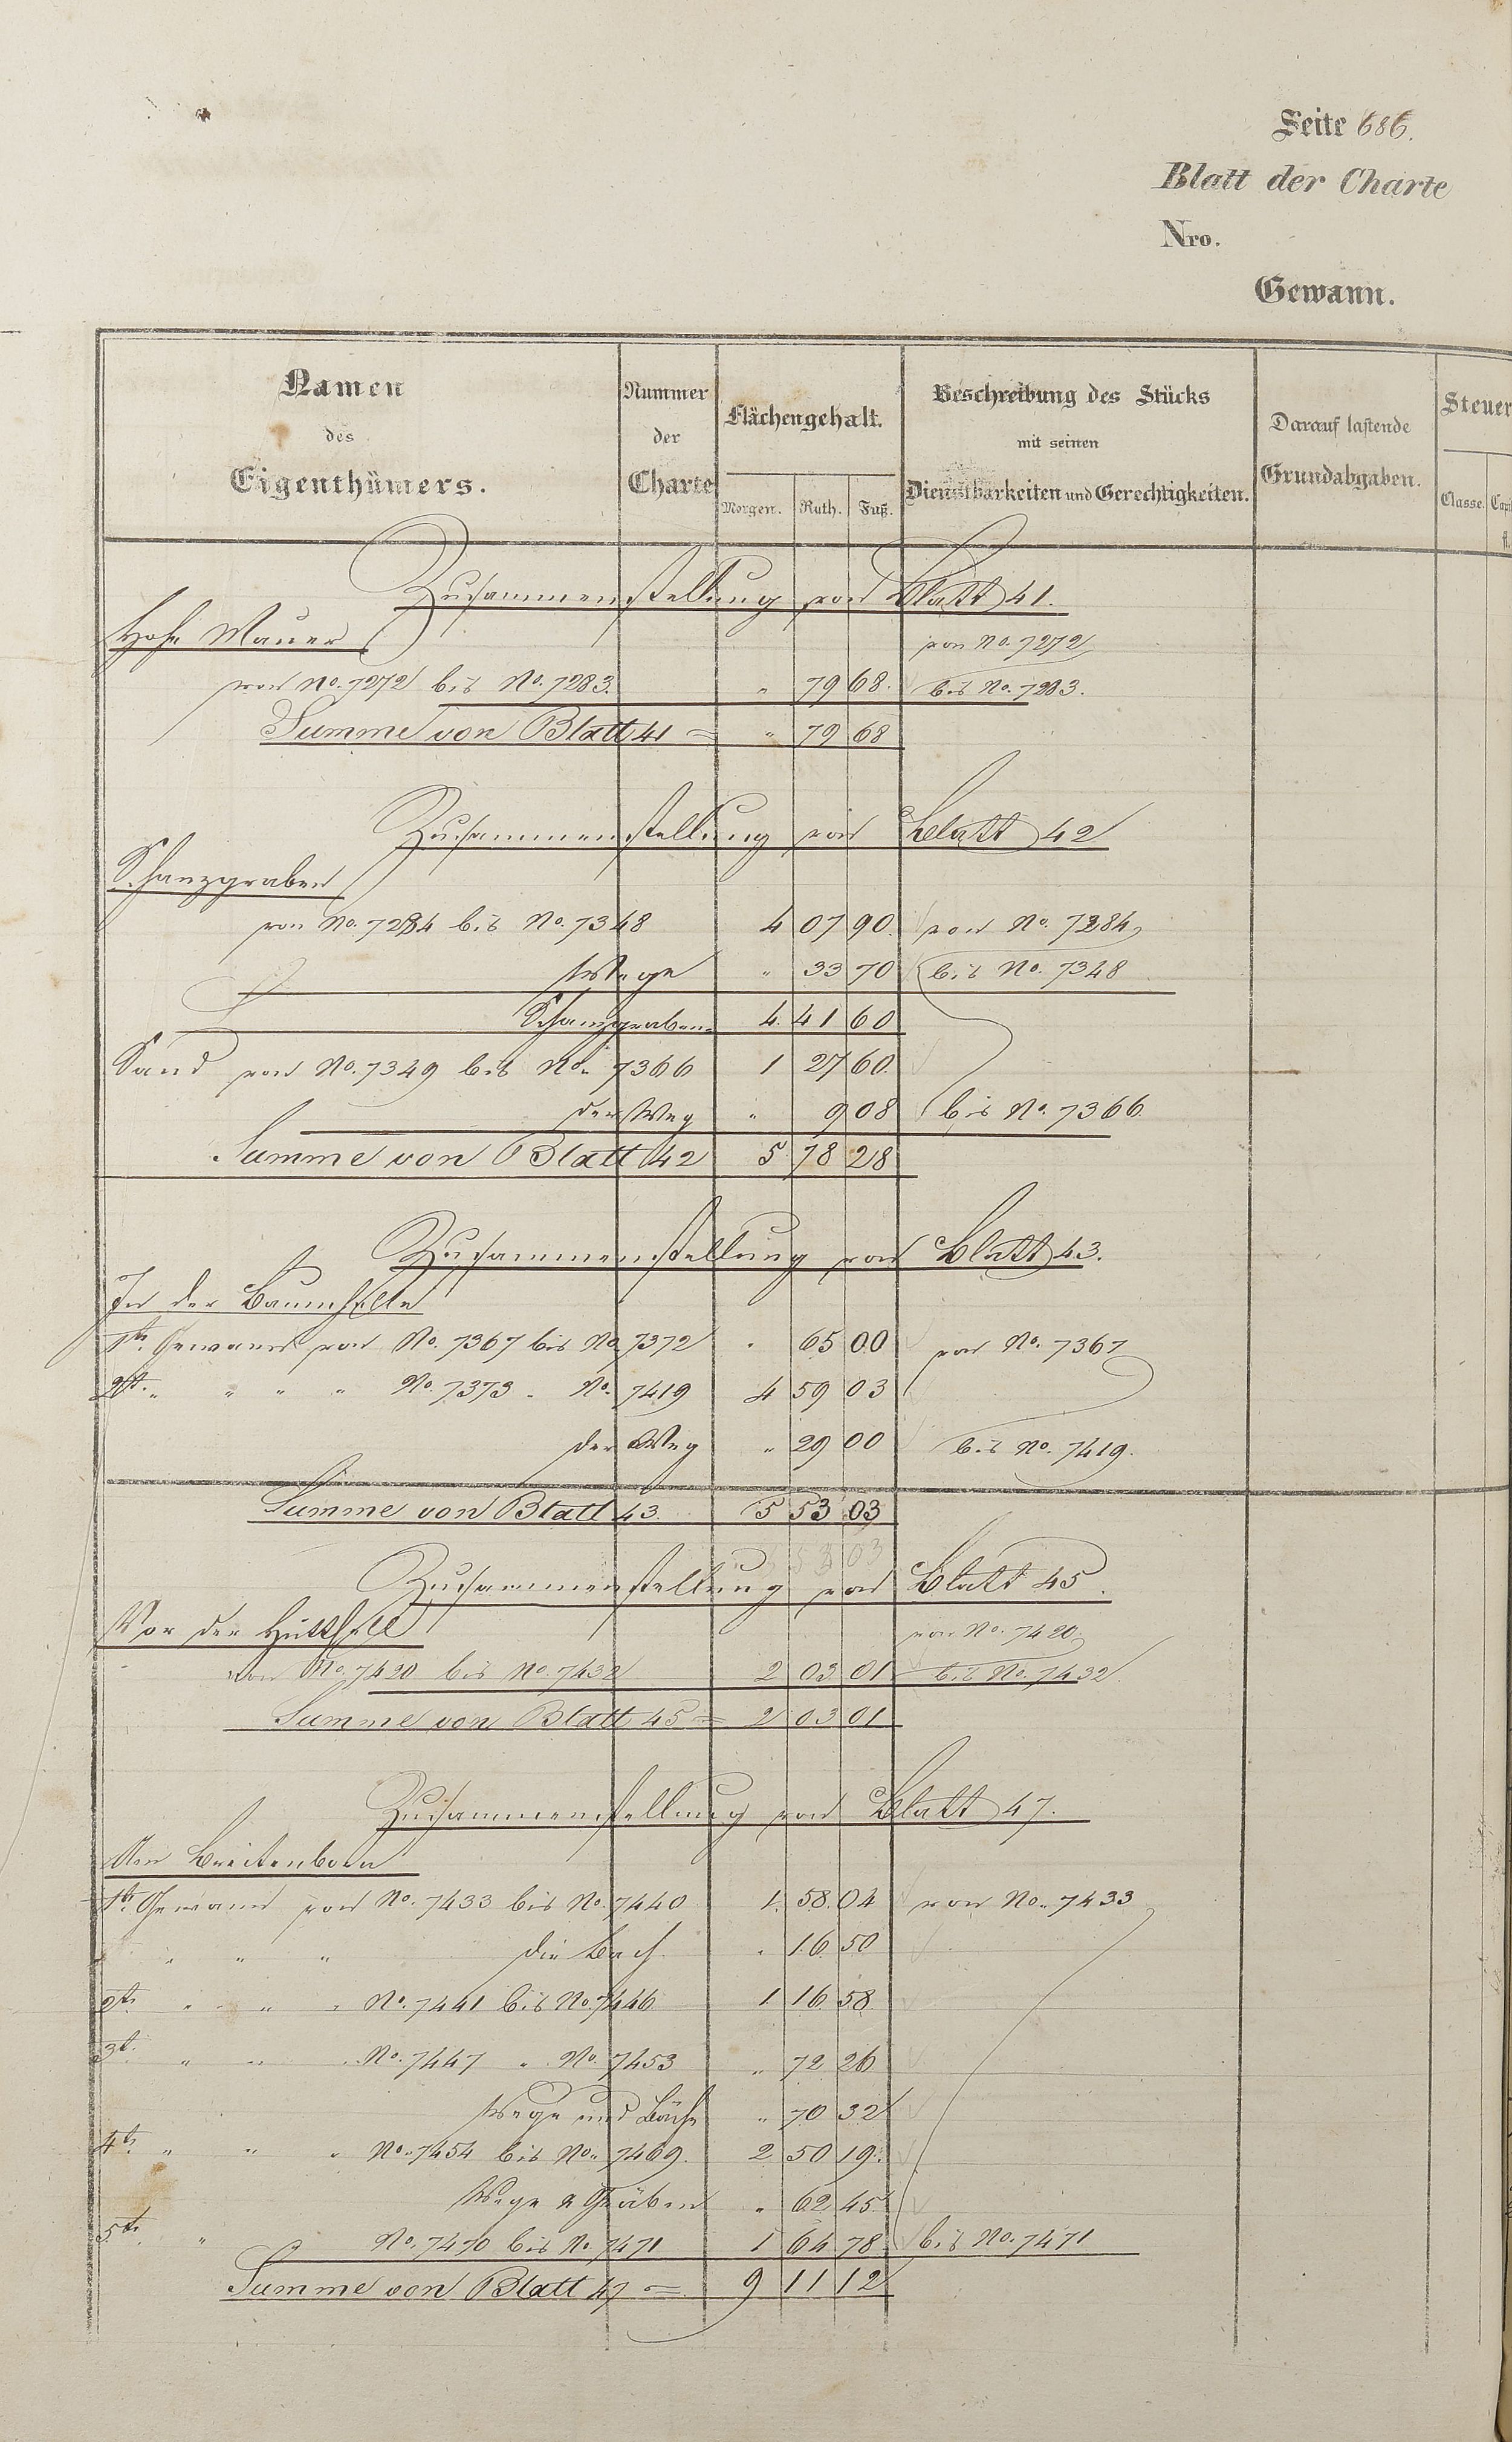 Seite 686.
Blatt der Charte
Nro.
Gewann.
Namen des Eigenthümers.
Nummer der Charte
Flächengehalt.
Morgen. Ruth. Fuß.
Beschreibung des Stücks mit seinen Dienstbarkeiten und Gerechtigkeiten.
Darauf lastende Grundabgaben.
Steuer
Classe. Cap
fl.
Zusammenstellung von Blatt 41.
Hohe Mauer
von No. 7272
von No. 7272 bis No. 7283. " 79 68. bis No. 7283.
Summe von Blatt 41 = " 79 68
Zusammenstellung von Blatt 42
Schanzgraben
von No. 7284 bis No. 7348 4 07 90. von No. 7284
Wege " 33 70 bis No. 7348
Schanzgraben 4. 41 60
Sand von No. 7349 bis No. 7366 1 27 60.
der Weg " 9 08 bis No. 7366
Summe von Blatt 42 5 78 28
Zusammenstellung von Blatt 43.
In der Baumhelle
1te Gewann von No. 7367 bis No. 7372 " 65 00 von No. 7367
2te " " " " No. 7373 " No. 7419 4 59 03
der Weg " 29 00 bis No. 7419.
Summe von Blatt 43. 5 53 03
5 53 03
Zusammenstellung von Blatt 45.
Vor der Hütthell
von No. 7420
von No. 7420 bis No. 7432 2 03 01 bis No. 7432
Summe von Blatt 45 = 2 03 01
Zusammenstellung von Blatt 47.
Am Breitenborn
1te Gewann von No. 7433 bis No. 7440 1. 58. 04 von No. 7433
" " " die Bach " 16 50
2te " " " No. 7441 bis No. 7446 1. 16 58.
3te " " " No. 7447 " No. 7453 " 72 26
Wege und Bäche " 70 32
4te " " " No. 7454 bis No. 7469. 2 50 19.
Wege & Gräben " 62 45.
5te " No. 7470 bis No. 7471 1 64 78. bis No. 7471
Summe von Blatt 47 = 9 11 12